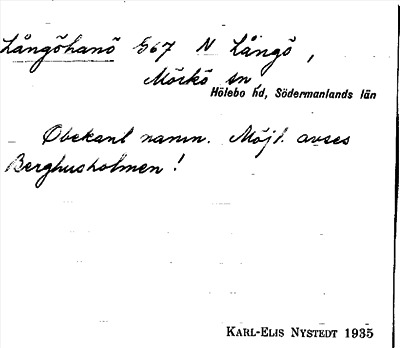 Långöhanö G67 N Långö,
Mörkö sn
Hölebo hd, Södermanlands län
Obekant namn. Möjl. avses
Berghusholmen!
KARL-ELIS NYSTEDT 1935